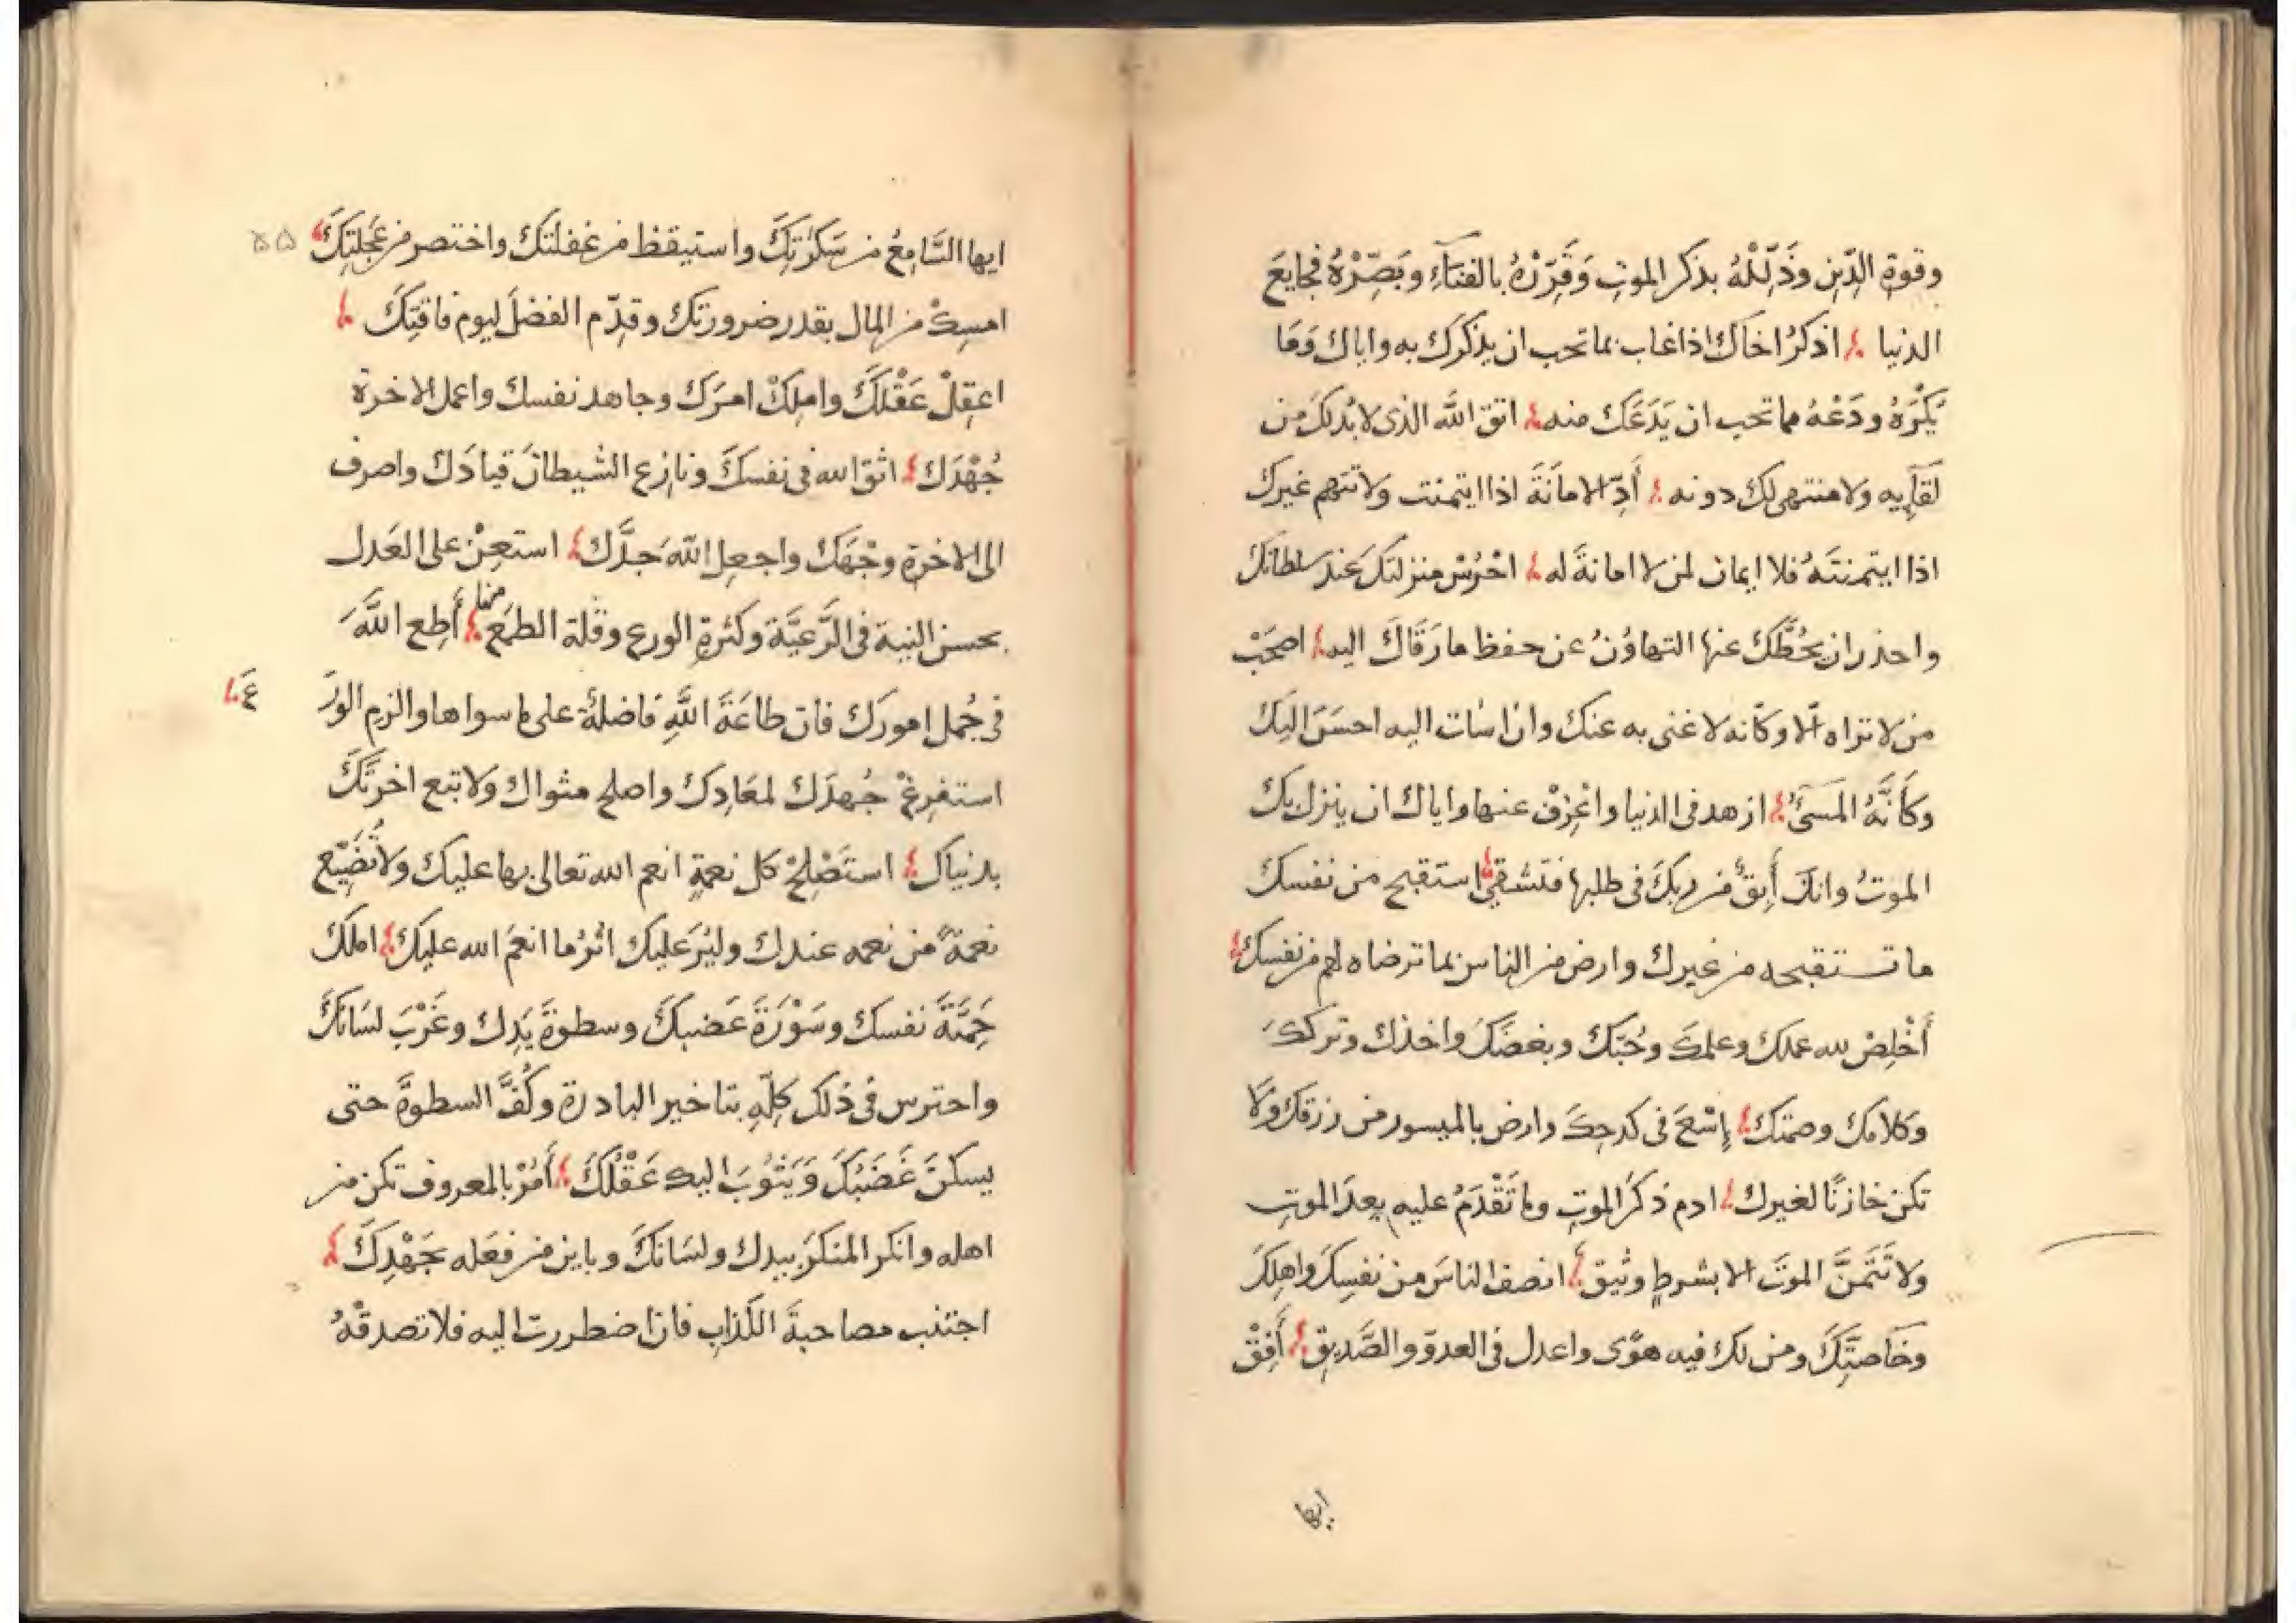 وقوة الدّين وذَلِّلْهُ بذكر الموتِ وَقَرِّرْهُ بالفنَآءِ وبَصِّرْهُ فجايعَ
الدنيا اذكرُ اخاك اذا غاب بما تحب ان يذكرَك به واياك وَمَا
يَكْرَهُ ودَعْهُ مما تحب ان يَدَعَك منه اتق اللّٰه الذى لا بُد لكَ من
لقَآئِه ولا منتهى لك دونه أَدِّ الامَانَةَ اذا ايتمنت ولا تتهم غيرك
اذا ايتمنتَهُ فلا ايمان لمن لا امانةَ له احْرُسْ منزلتكَ عند سلطانِكَ
واحذر ان يَحُطَّكَ عنها التهاوُنُ عن حفظ ما رَقّاكَ اليه اصحَبْ
من لا تراه الّا وكأنه لا غنى به عنك وان اسَات اليه احسَنَ اليكَ
وكَأَنَّهُ المَسئُ ازهد فى الدنيا واعْزِفْ عنها واياك ان ينزل بك
الموتُ وانكَ آبِقٌ من ربكَ فى طلبها فتشقى استقبح من نفسك
ما تستقبحه من غيرك وارض من الناس بما ترضاه لهم من نفسك
أَخْلِصْ لله عملك وعلمكَ وحُبّكَ وبغضَكَ واخذك وتركك
وكلامك وصمتك إسْعَ فى كدحِكَ وارض بالميسور من رزقك ولا
تكن خازنًا لغيرك ادم ذكرَ الموتِ وما تَقْدَمُ عليه بعدَ الموتِ
ولا تَتَمنَّ الموتَ الا بشرطٍ وثيق انصف الناسَ من نفسِكَ واهلِكَ
وخاصّتِكَ ومن لك فيه هوًى واعدل فى العدوّ والصَّديقِ أَفِقْ
ايها
ايها السَّامِعُ من سَكرَتِكَ واستيقظ من غفلتكَ واختصر من عَجَلتِكَ ۵۵
امسِكْ من المال بقدر ضرورتِكَ وقدِّم الفضلَ ليوم فاقتِكَ
اعقِلْ عَقْلَكَ واملِكْ امرَك وجاهد نفسك واعمل للاخرة
جُهْدَك اتق الله فى نفسكَ ونازع الشيطانَ قيادَك واصرف
الى الاخرة وجْهَكَ واجعل للّٰه جدَّك استعِنْ على العَدل
بحسن النية فى الرَّعيَّة وكثرةِ الورع وقلة الطمَع منها أَطِع اللّٰهَ
فى جُملِ امورك فان طاعَةَ اللّٰهِ فاضلةٌ على ما سواها والزم الورَ
عَ
استفرِغْ جُهدَك لمعَادِك واصلح مثواك ولا تبع اخرتَكَ
بدنياك استَصْلِحْ كل نعمةٍ انعم الله تعالى بها عليك ولا تُضَيِّع
نعمةً من نعمه عندك وليُرَ عليك اثرُ ما انعمَ الله عليك املك
حَمِيَّةَ نفسك وسَوْرَةَ غَضبكَ وسطوةَ يَدِك وغَرْبَ لسَانكَ
واحترس فى ذلك كلِّهِ بتاخير البادرة وكُفَّ السطوةَ حتى
يسكنَ غَضَبُكَ وَيَثُوبَ اليك عَقْلُكَ أْمُرْ بالمعروف تكن من
اهله وانكر المنكرَ بيدك ولسَانكَ وباين من فعَله بجَهْدِكَ
اجتنب مصاحبةَ الكَذابِ فان اضطررت اليه فلا تصدقْهُ